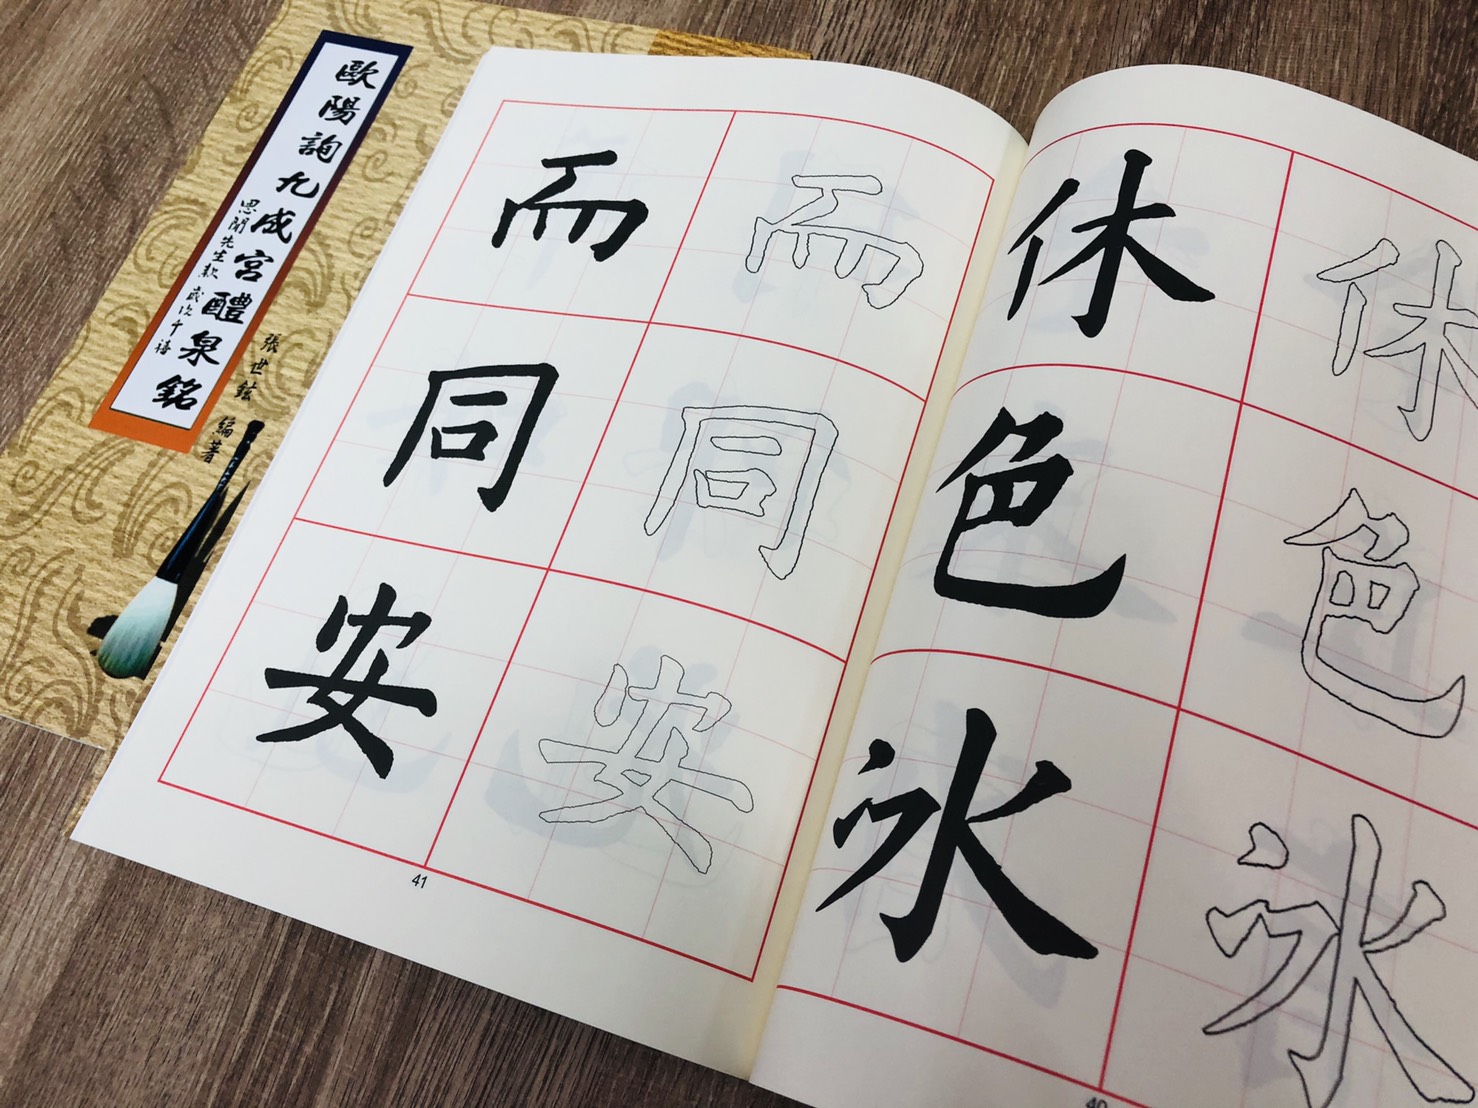 歐陽詢九成宮醴泉銘
思閒先生款 歲次千禧
張世鉉 編著
休 休
色 色
冰 冰
40
而 而
同 同
安 安
41